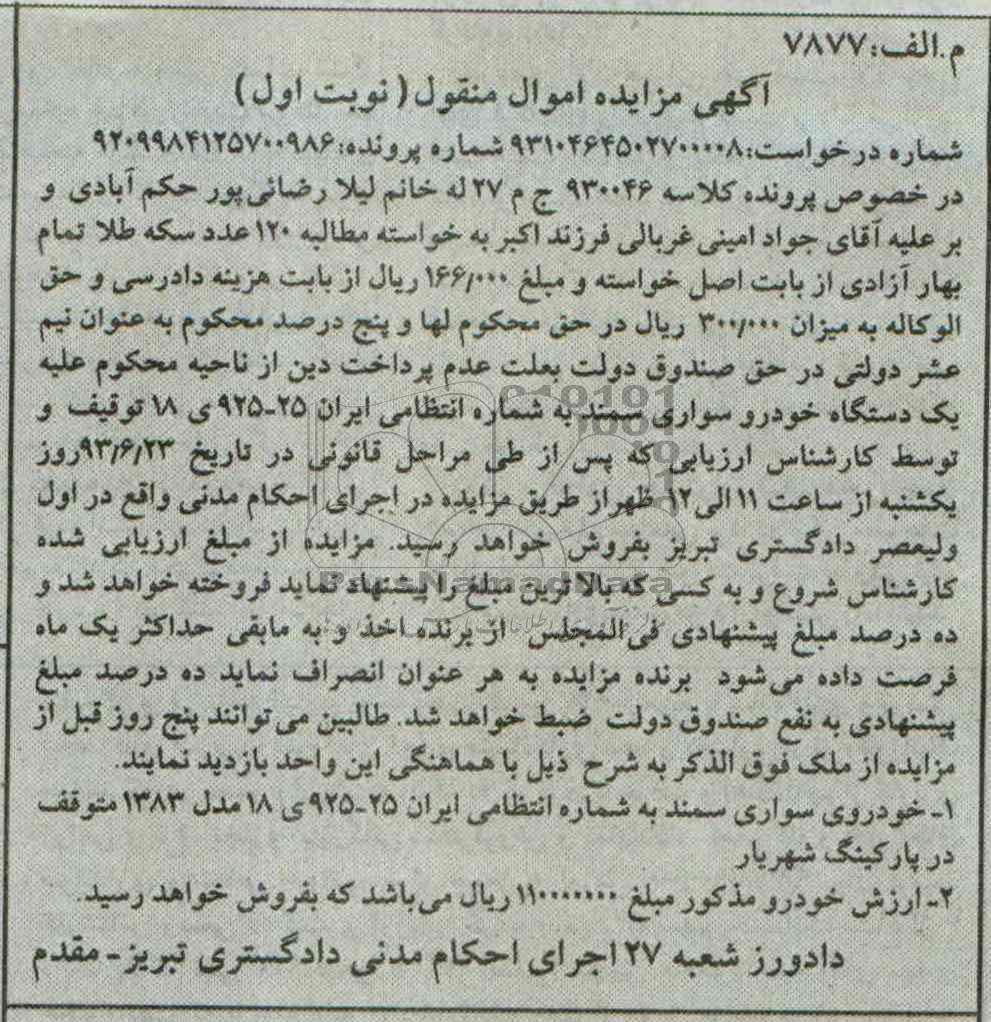 م.الف:۷۸۷۷
آگهی مزایده اموال منقول (نوبت اول)
شماره درخواست:۹۳۱۰۴۶۴۵۰۲۷۰۰۰۰۸ شماره پرونده:۹۲۰۹۹۸۴۱۲۵۷۰۰۹۸۶
در خصوص پرونده کلاسه ۹۳۰۰۴۶ ج م ۲۷ له خانم لیلا رضائی‌پور حکم آبادی و
بر علیه آقای جواد امینی غربالی فرزند اکبر به خواسته مطالبه ۱۲۰ عدد سکه طلا تمام
بهار آزادی از بابت اصل خواسته و مبلغ ۱۶۶/۰۰۰ ریال از بابت هزینه دادرسی و حق
الوکاله به میزان ۳۰۰/۰۰۰ ریال در حق محکوم لها و پنج درصد محکوم به عنوان نیم
عشر دولتی در حق صندوق دولت بعلت عدم پرداخت دین از ناحیه محکوم علیه
یک دستگاه خودرو سواری سمند به شماره انتظامی ایران ۲۵-۹۲۵ ی ۱۸ توقیف و
توسط کارشناس ارزیابی که پس از طی مراحل قانونی در تاریخ ۹۳/۶/۲۳روز
یکشنبه از ساعت ۱۱ الی ۱۲ ظهر از طریق مزایده در اجرای احکام مدنی واقع در اول
ولیعصر دادگستری تبریز بفروش خواهد رسید. مزایده از مبلغ ارزیابی شده
کارشناس شروع و به کسی که بالاترین مبلغ را پیشنهاد نماید فروخته خواهد شد و
ده درصد مبلغ پیشنهادی فی‌المجلس از برنده اخذ و به مابقی حداکثر یک ماه
فرصت داده می‌شود برنده مزایده به هر عنوان انصراف نماید ده درصد مبلغ
پیشنهادی به نفع صندوق دولت ضبط خواهد شد. طالبین می‌توانند پنج روز قبل از
مزایده از ملک فوق الذکر به شرح ذیل با هماهنگی این واحد بازدید نمایند.
۱- خودروی سواری سمند به شماره انتظامی ایران ۲۵-۹۲۵ ی ۱۸ مدل ۱۳۸۳ متوقف
در پارکینگ شهریار
۲- ارزش خودرو مذکور مبلغ ۱۱۰۰۰۰۰۰۰ ریال می‌باشد که بفروش خواهد رسید.
دادورز شعبه ۲۷ اجرای احکام مدنی دادگستری تبریز - مقدم
ParsNamadData